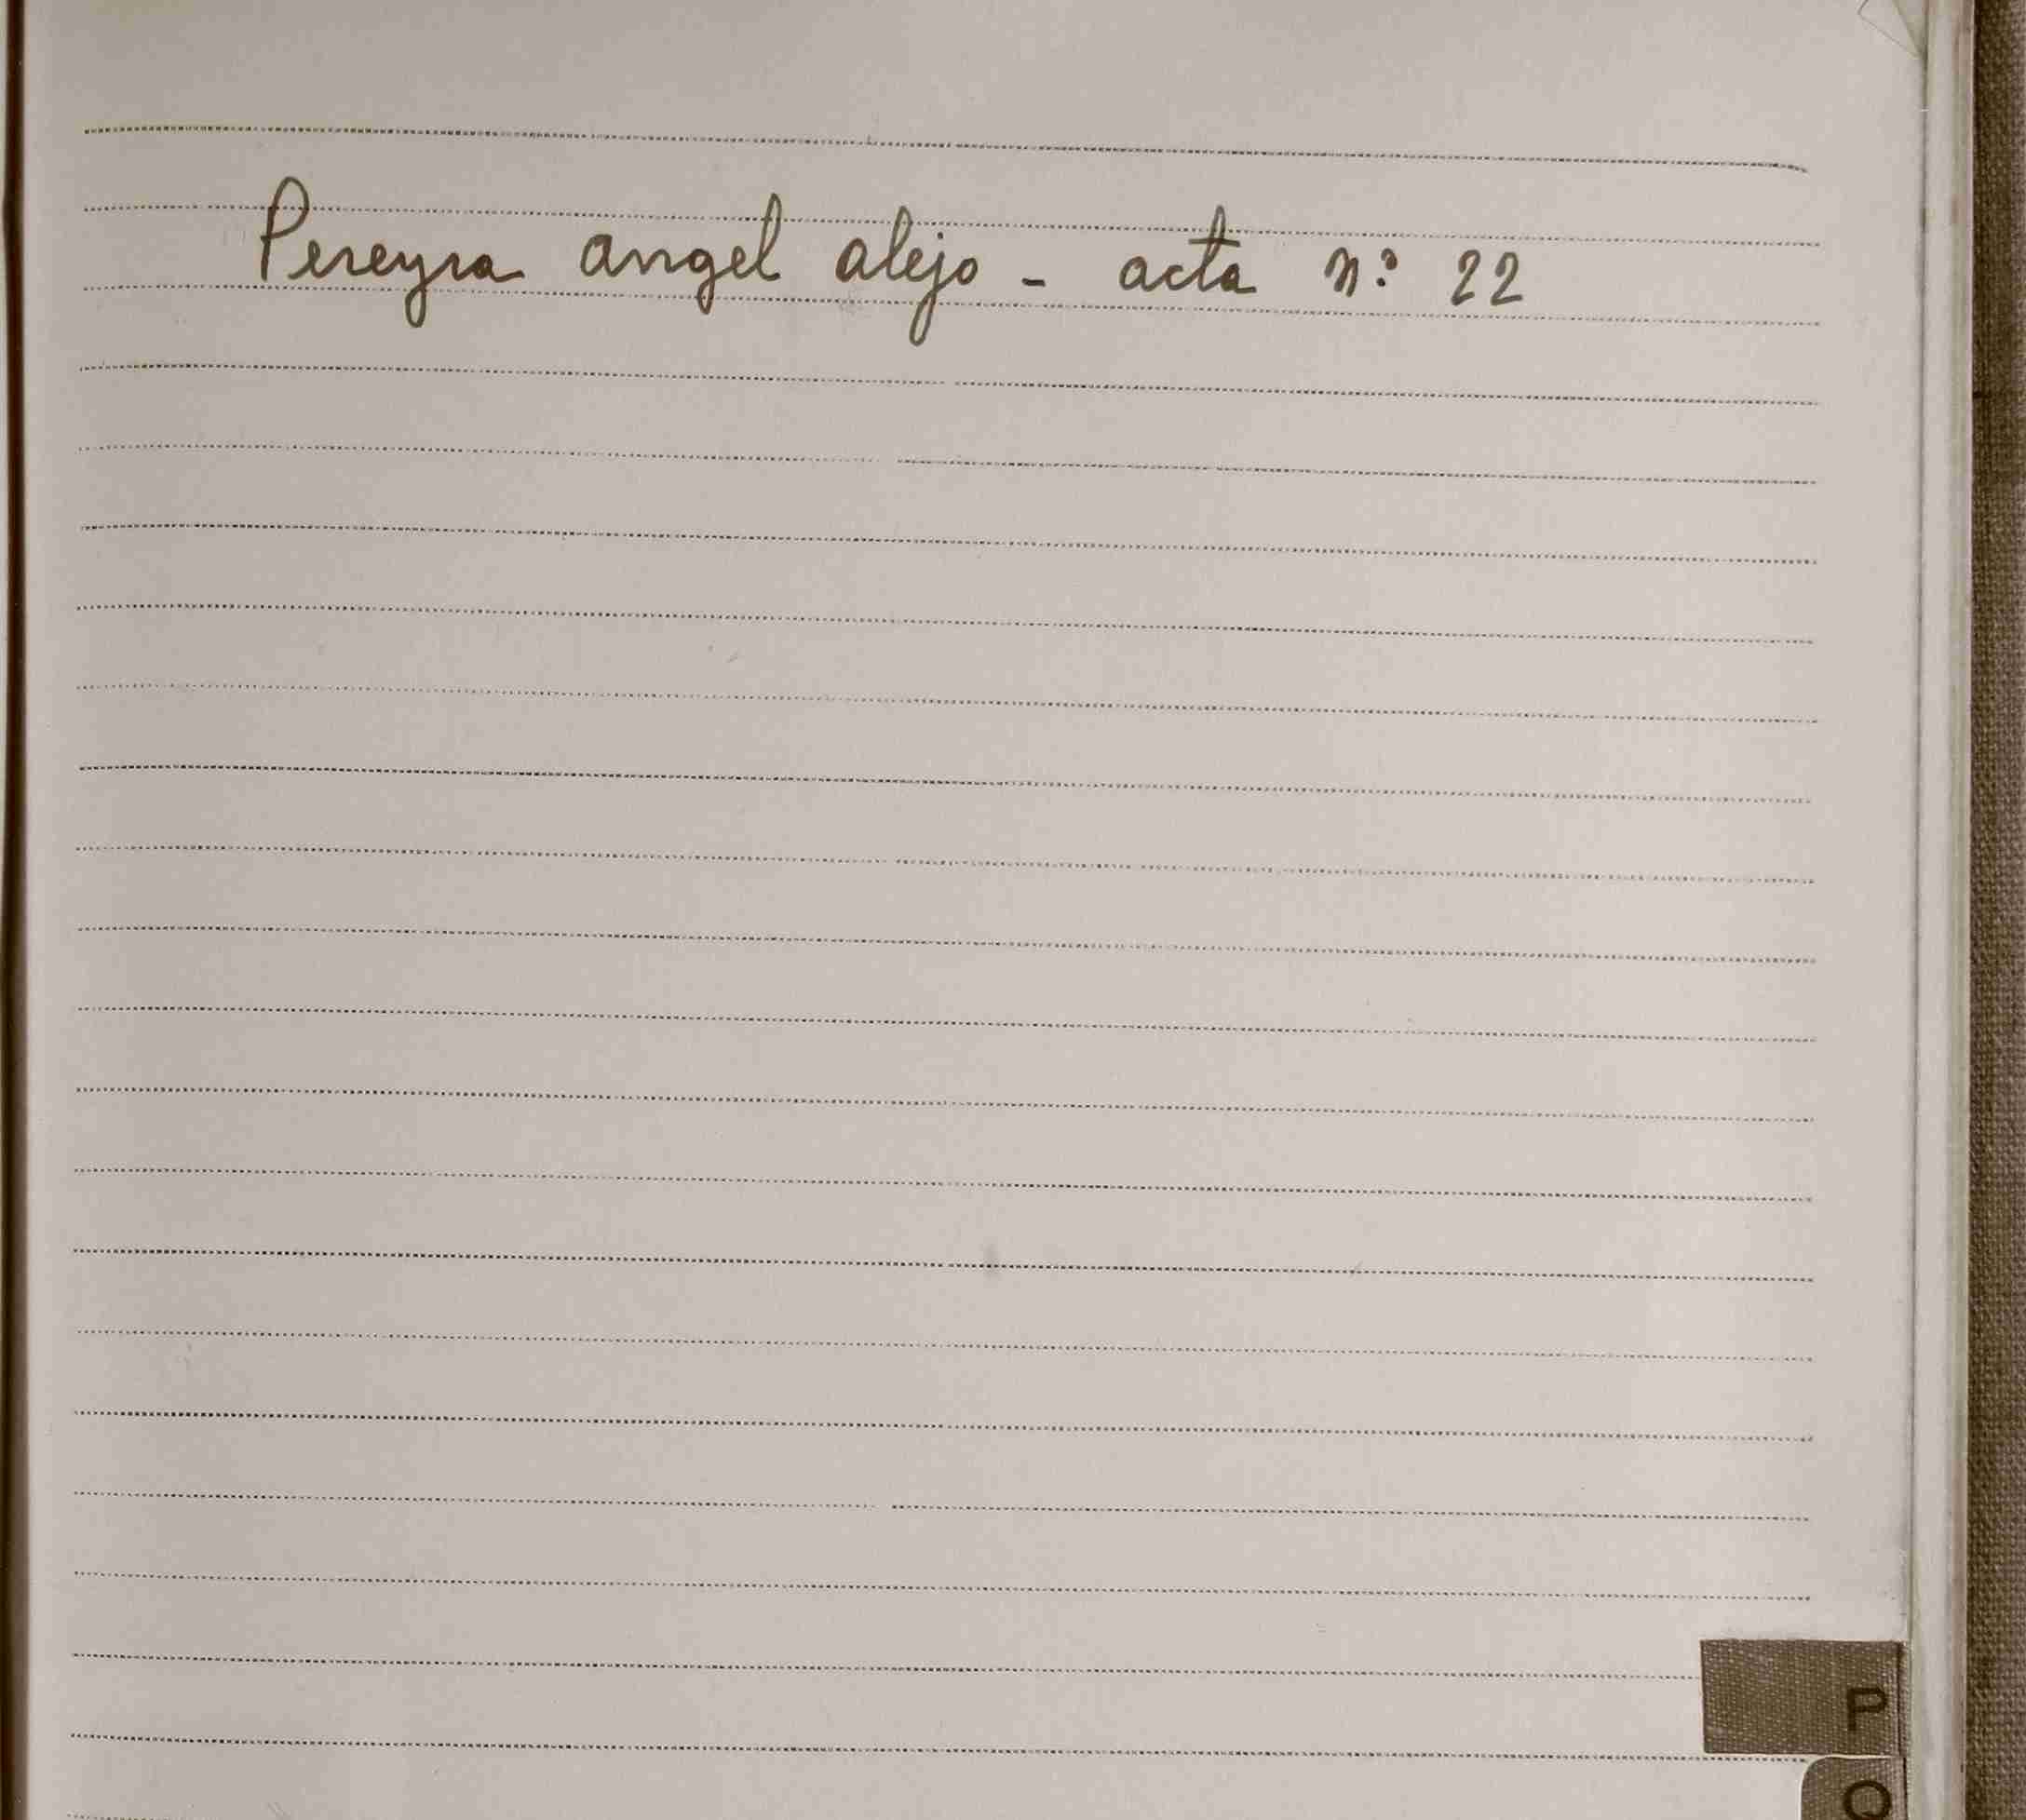 Pereyra angel alejo - acta n.º 22
P
Q